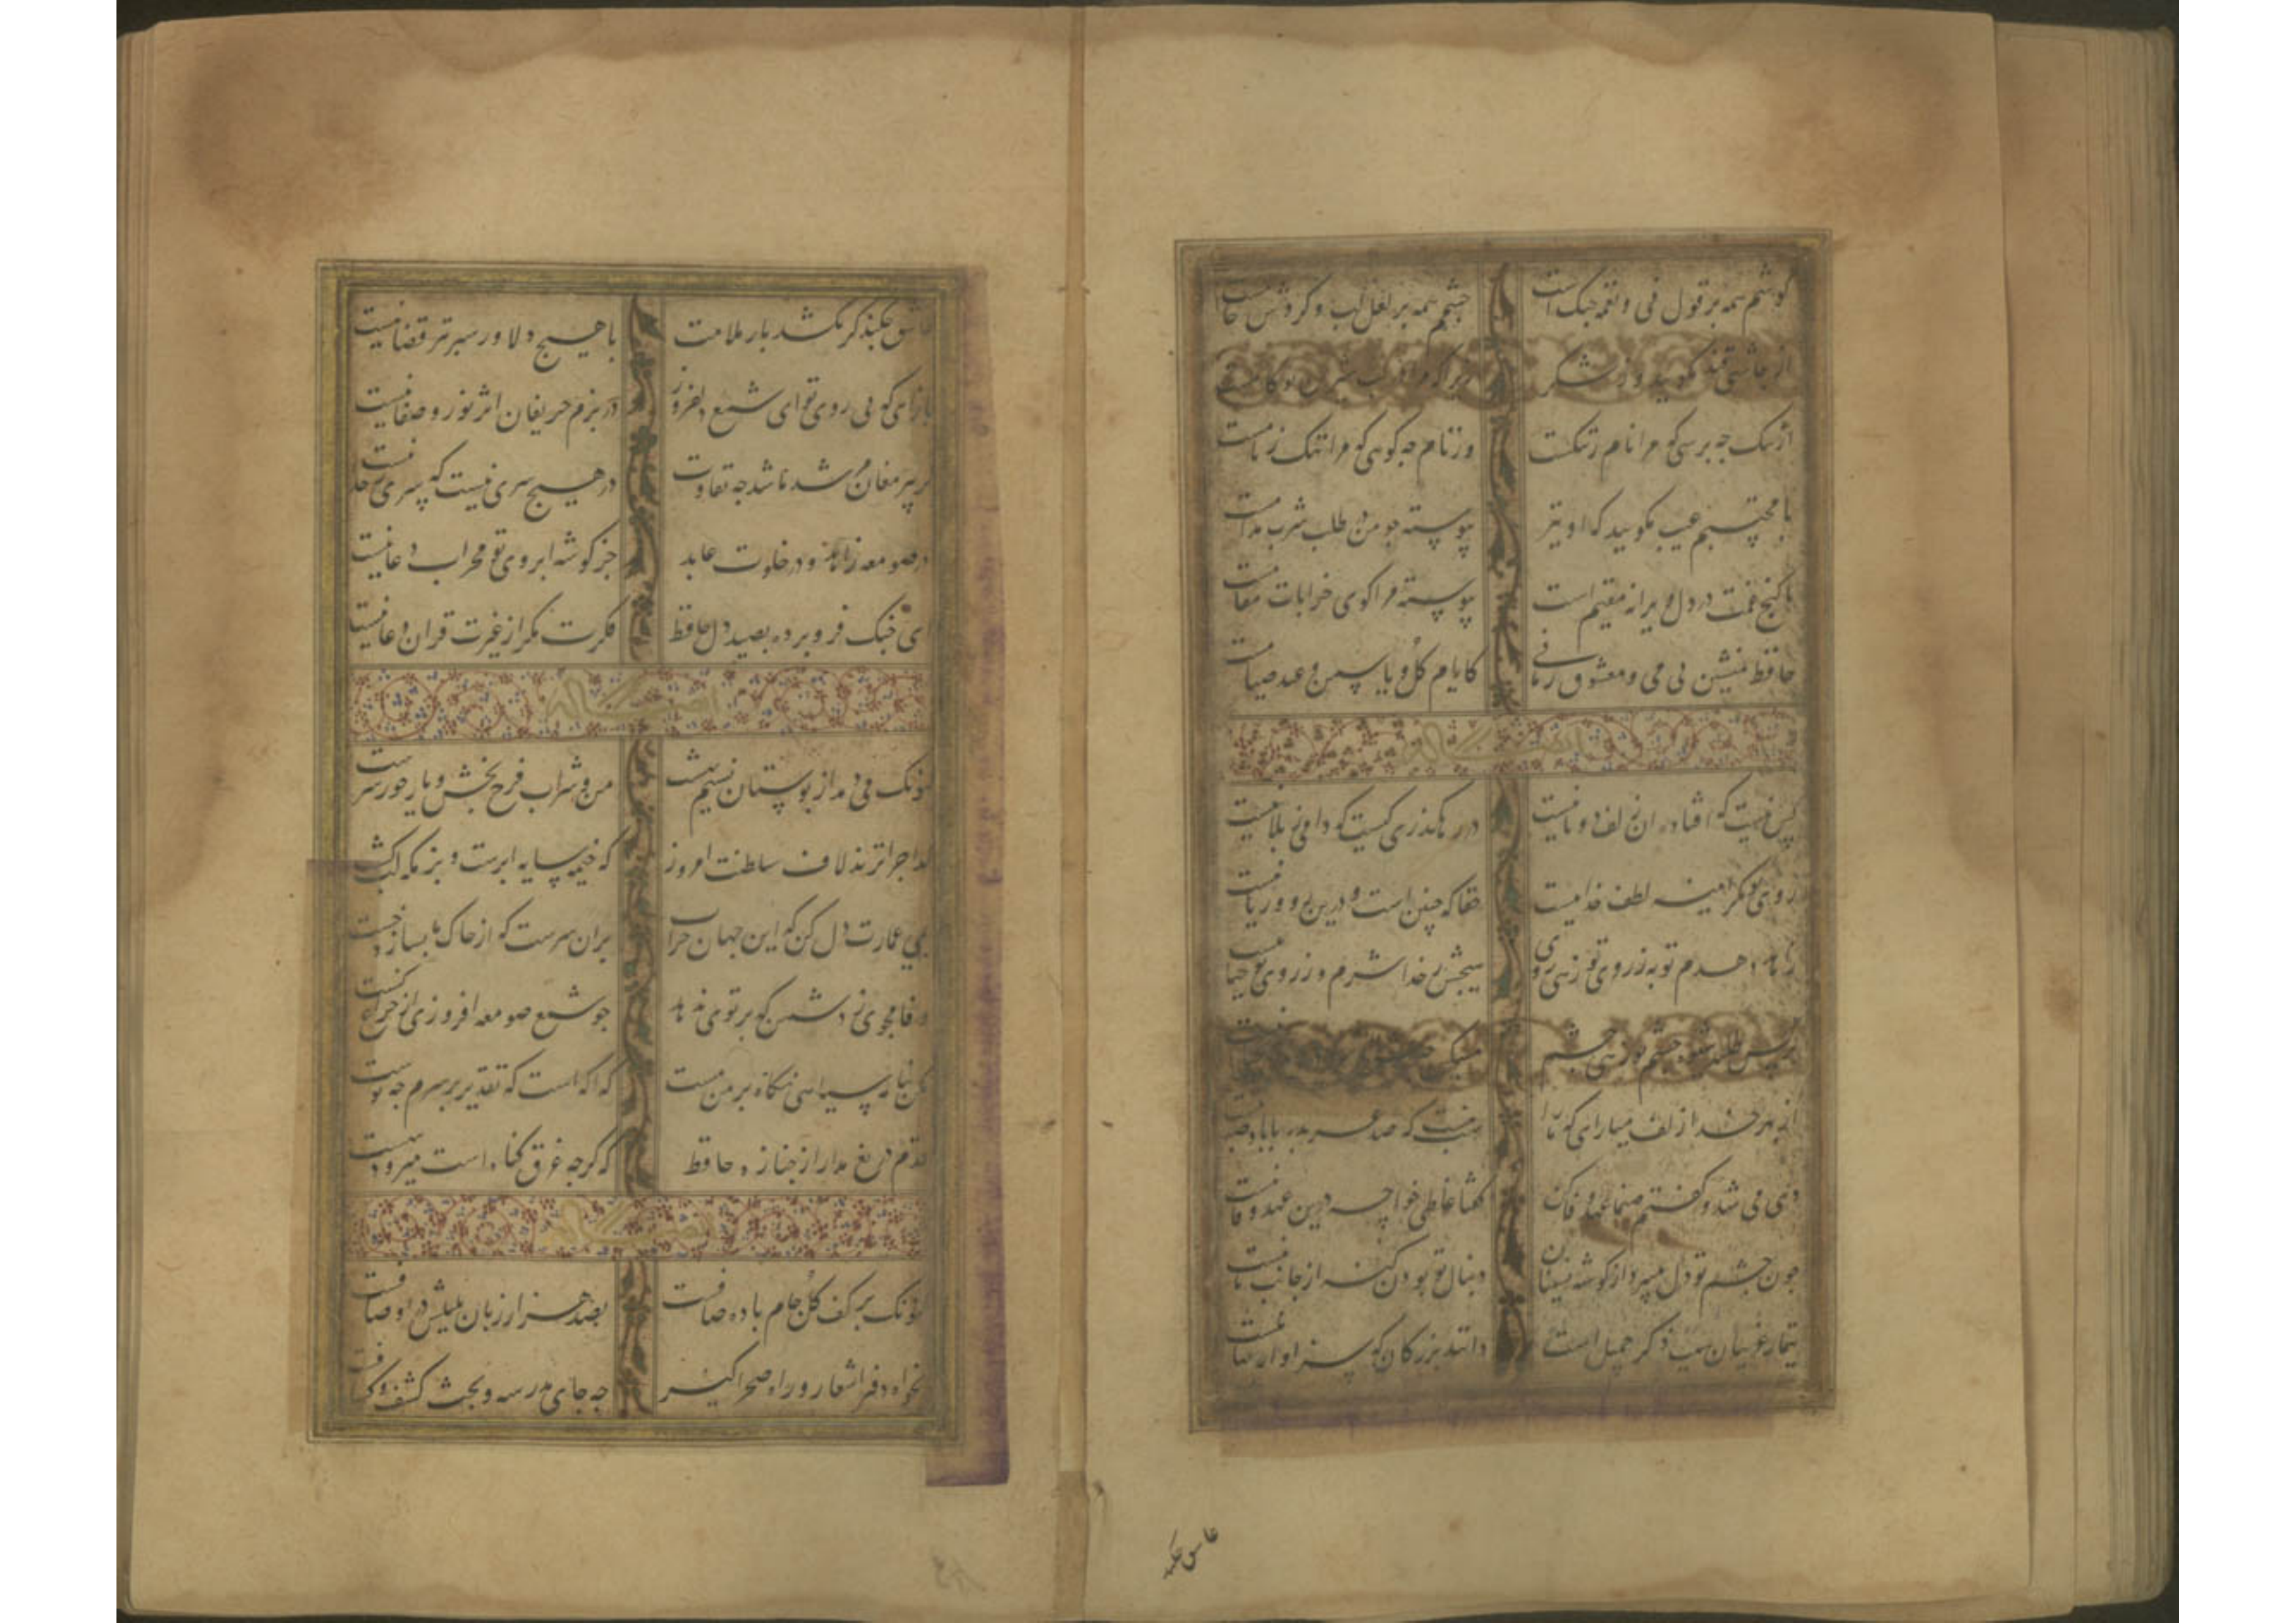 گوشم همه بر قول نی و نغمه چنک است چشم همه بر لعل لب و گردش جامست
از چاشنی قند مگوید و ز شکر
از ننک چه پرسی که مرا نام ز ننکست وز نام چه گوئی که مرا ننک ز نامست
با محتسبم عیب مگویید که او نیز پیوسته چو من در طلب شرب مدامست
تا گنج غمت در دل ویرانه مقیم است پیوسته مرا کوی خرابات مقامست
حافظ منشین بی می و معشوق زمانی کایام گل و یاسمن و عید صیامست
کس نیست که افتاده آن زلف دوتا نیست در رهگذری کیست که دامی ز بلا نیست
روی تو مگر آینه لطف خداییست حقا که چنین است و درین روی و ریا نیست
زاهد دهدم توبه ز روی تو زهی روی هیچش ز خدا شرم و ز روی تو حیا نیست
نرکس طلبد شیوه چشم تو زهی چشم مسکین
از بهر خدا زلف میارای که ما را شب نیست که صد عربده با باد صبا نیست
دی می شد و گفتم صنما عهد بجای آر گفتا غلطی خواجه درین عهد وفا نیست
چون چشم تو دل میبرد از گوشه نشینان دنبال تو بودن گنه از جانب ما نیست
تیمار غریبان سبب ذکر جمیل است دانند بزرگان که سزاوار
عاشق چکند
عاشق چکند گر نکشد بار ملامت با هیچ دلاور سپر تیر قضا نیست
بازآی که بی روی تو ای شمع دلفروز در بزم حریفان اثر نور و صفا نیست
گر پیر مغان مرشد ما شد چه تفاوت در هیچ سری نیست که سری ز خدا نیست
در صومعه زاهد و در خلوت عابد جز گوشه ابروی تو محراب دعا نیست
ای چنک فرو برده بصید دل حافظ فکرت مگر از غیرت قرآن و دعا نیست
کنونک می دمد از بوستان نسیم بهشت من و شراب فرح بخش و یار حورسرشت
گدا چرا نزند لاف سلطنت امروز که خیمه سایه ابرست و بزمگه لب کشت
بمی عمارت دل کن که این جهان خراب بران سرست که از خاک ما بسازد خشت
وفا مجوی ز دشمن که پرتوی ندهد چو شمع صومعه افروزی از چراغ کنشت
مکن بنامه سیاهی نگاه بر من مست که آگه است که تقدیر بر سرم چه نوشت
قدم دریغ مدار از جنازه حافظ که گرچه غرق گناه است میرود ببهشت
کنونک بر کف گل جام باده صافست بصد هزار زبان بلبلش در اوصافست
بخواه دفتر اشعار و راه صحرا گیر چه جای مدرسه و بحث کشف و کشافست